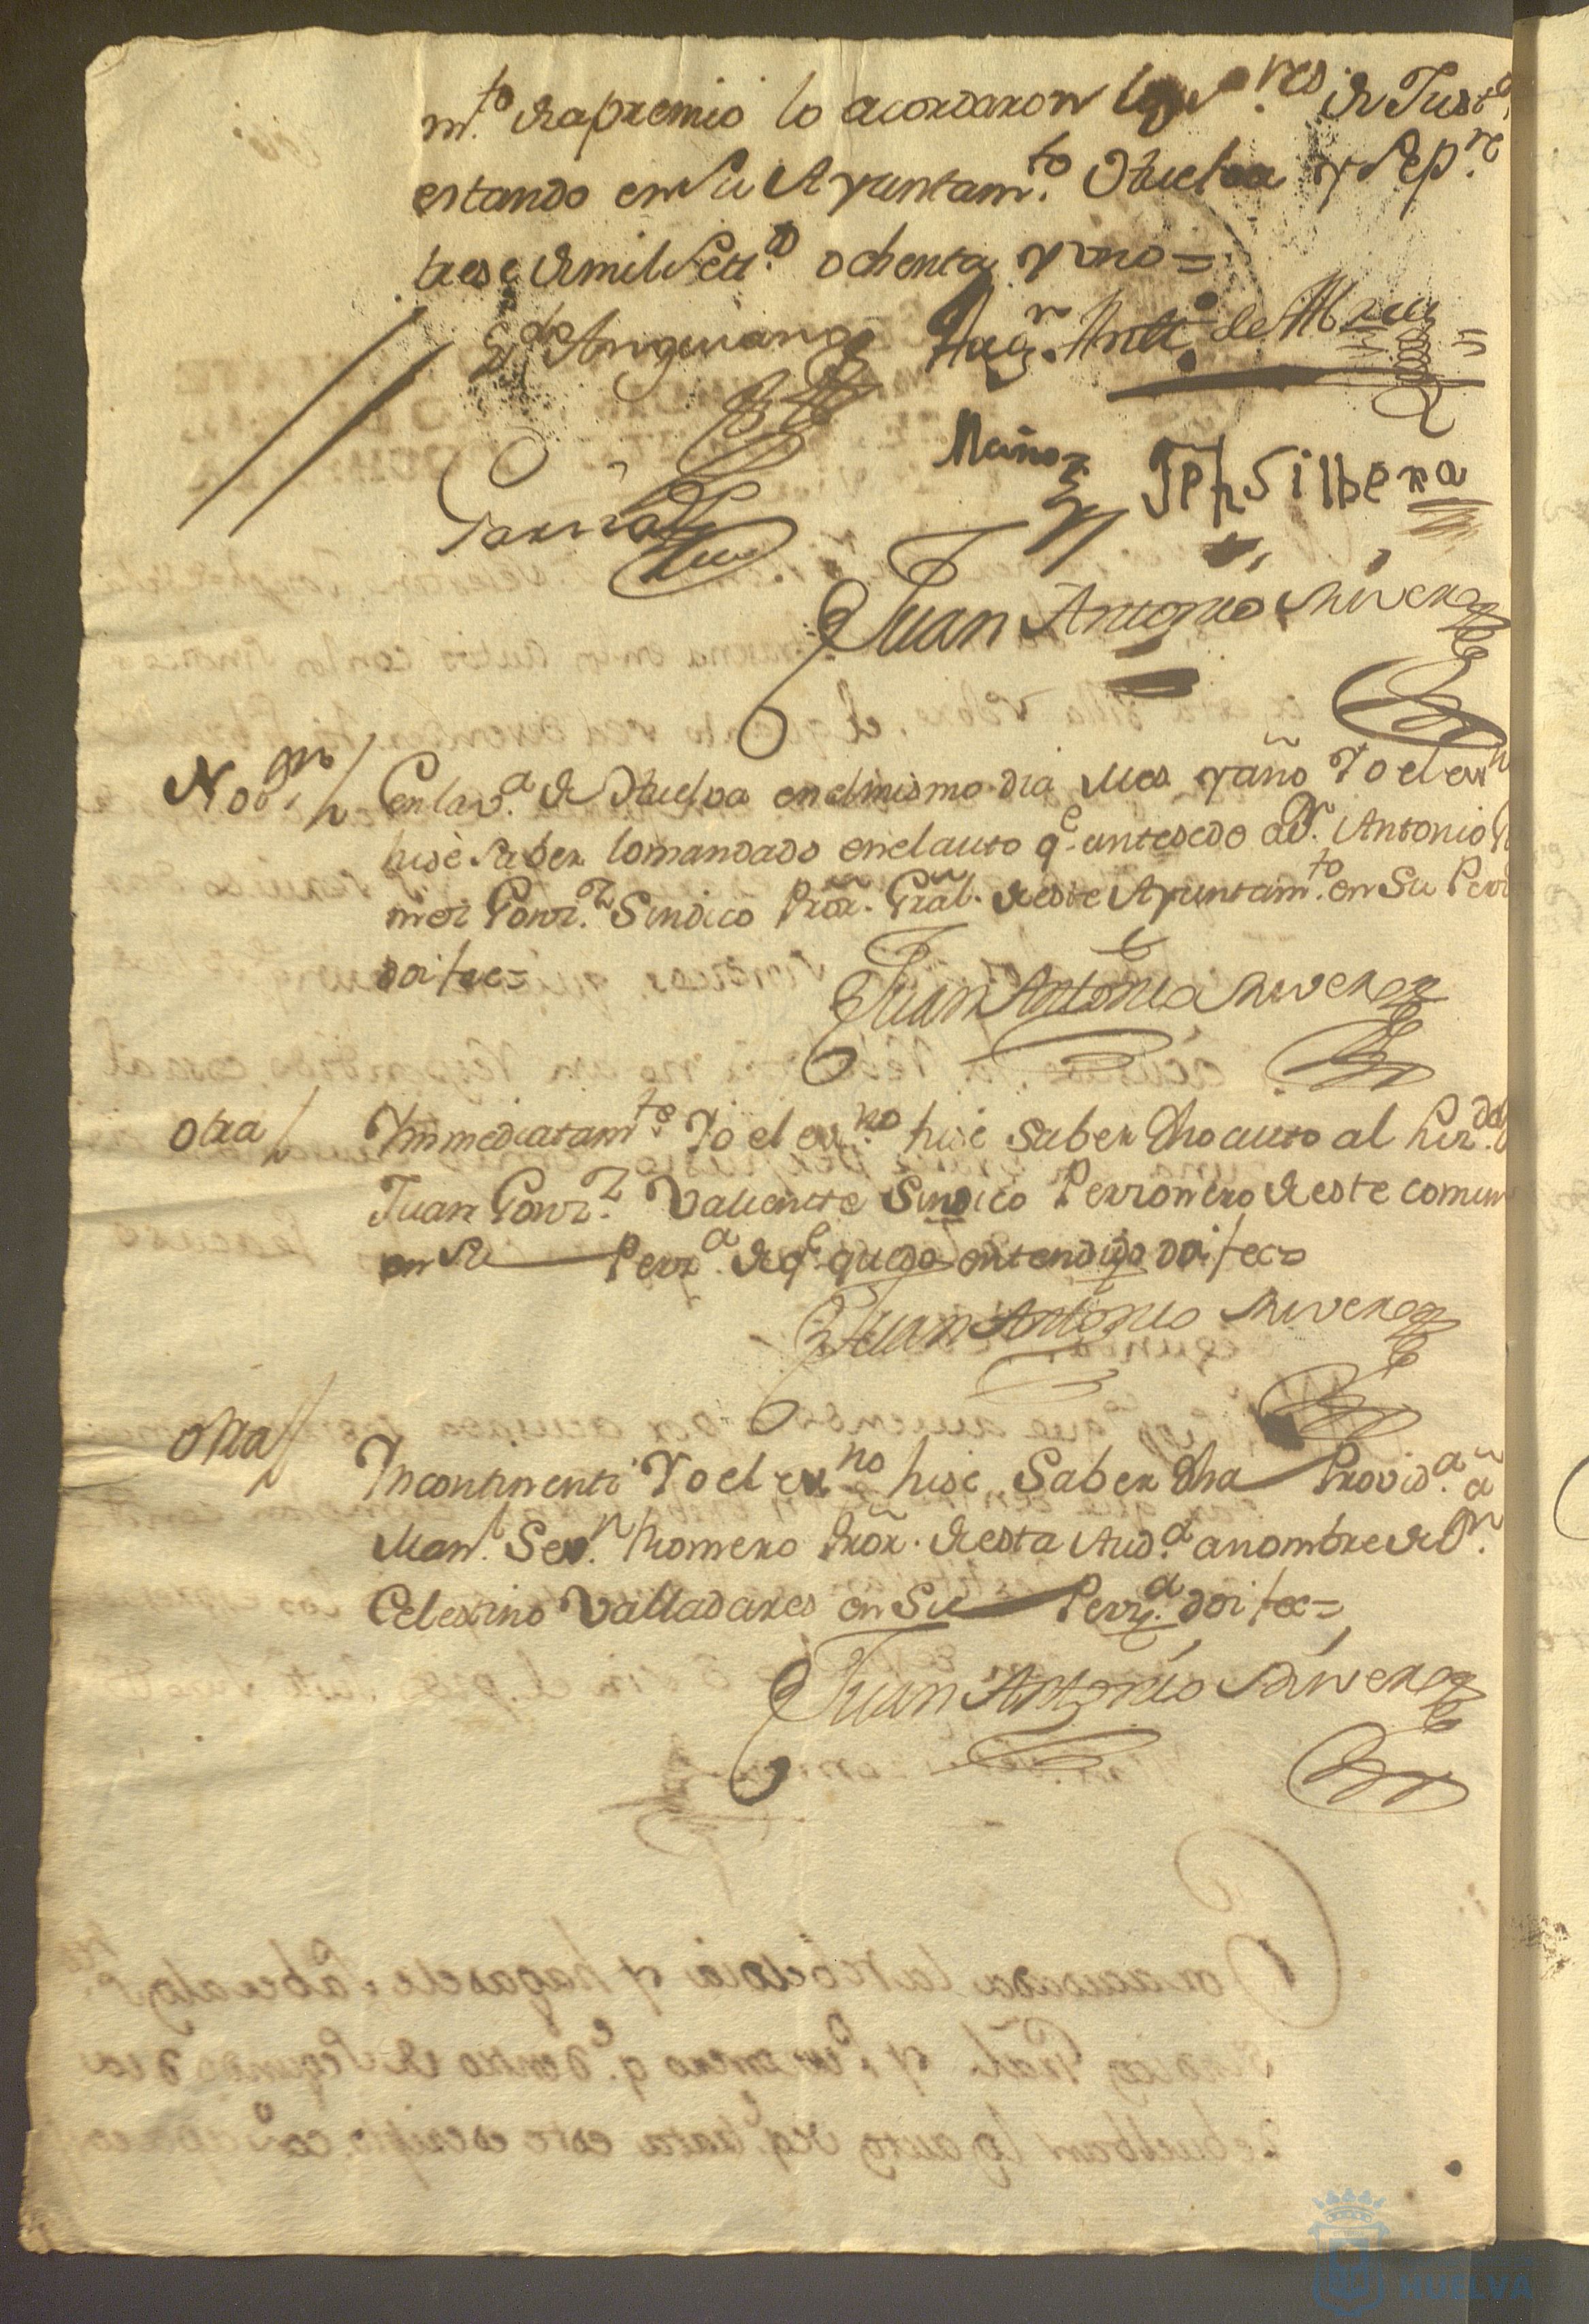 m.to de apremio lo acordaron los S.res de Just.a
estando en su Ayuntam.to Huelva y Sep.re
trese de mil Set.s ochenta y uno =
L.do Anguiano Aug.n Ant.o de
Garzia Muñoz Jph Silbera
Juan Antonio Rivera
No.on // En la v.a de Huelva en el mismo dia mes y año Yo el es.no
hise saber lo mandado en el auto q.e antesede a D.n Antonio
Gonz.z Sindico Prór. Grãl. de este Ayuntam.to en su Pers
doi fee =
Juan Antonio Rivera
otra / Ynmediatam.te Yo el es.no hise saber dho auto al
Juan Gonz.z Valiente Sindico Personero de este comun
en su Pers.a de q.e quedo entendido doi fee =
Juan Antonio Rivera
otra // Yncontinenti Yo el es.no hise saber dha Provid.a a
Man.l Seb.n Romero Prór. de esta Aud.a a nombre de D.n
Celestino Valladares en su Pers.a doi fee =
Juan Antonio Rivera
HUELVA